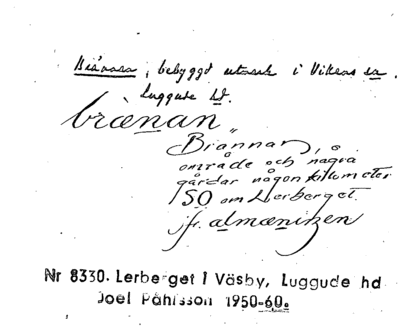 bebyggd utmark i Vikens sn.
Luggude hd.
brænan
"Brännan",
område och några
gårdar någon kilometer
SO om Lerberget.
jfr. almæniŋen
Nr 8330. Lerberget i Väsby, Luggude hd
Joel Påhlsson 1950-60.